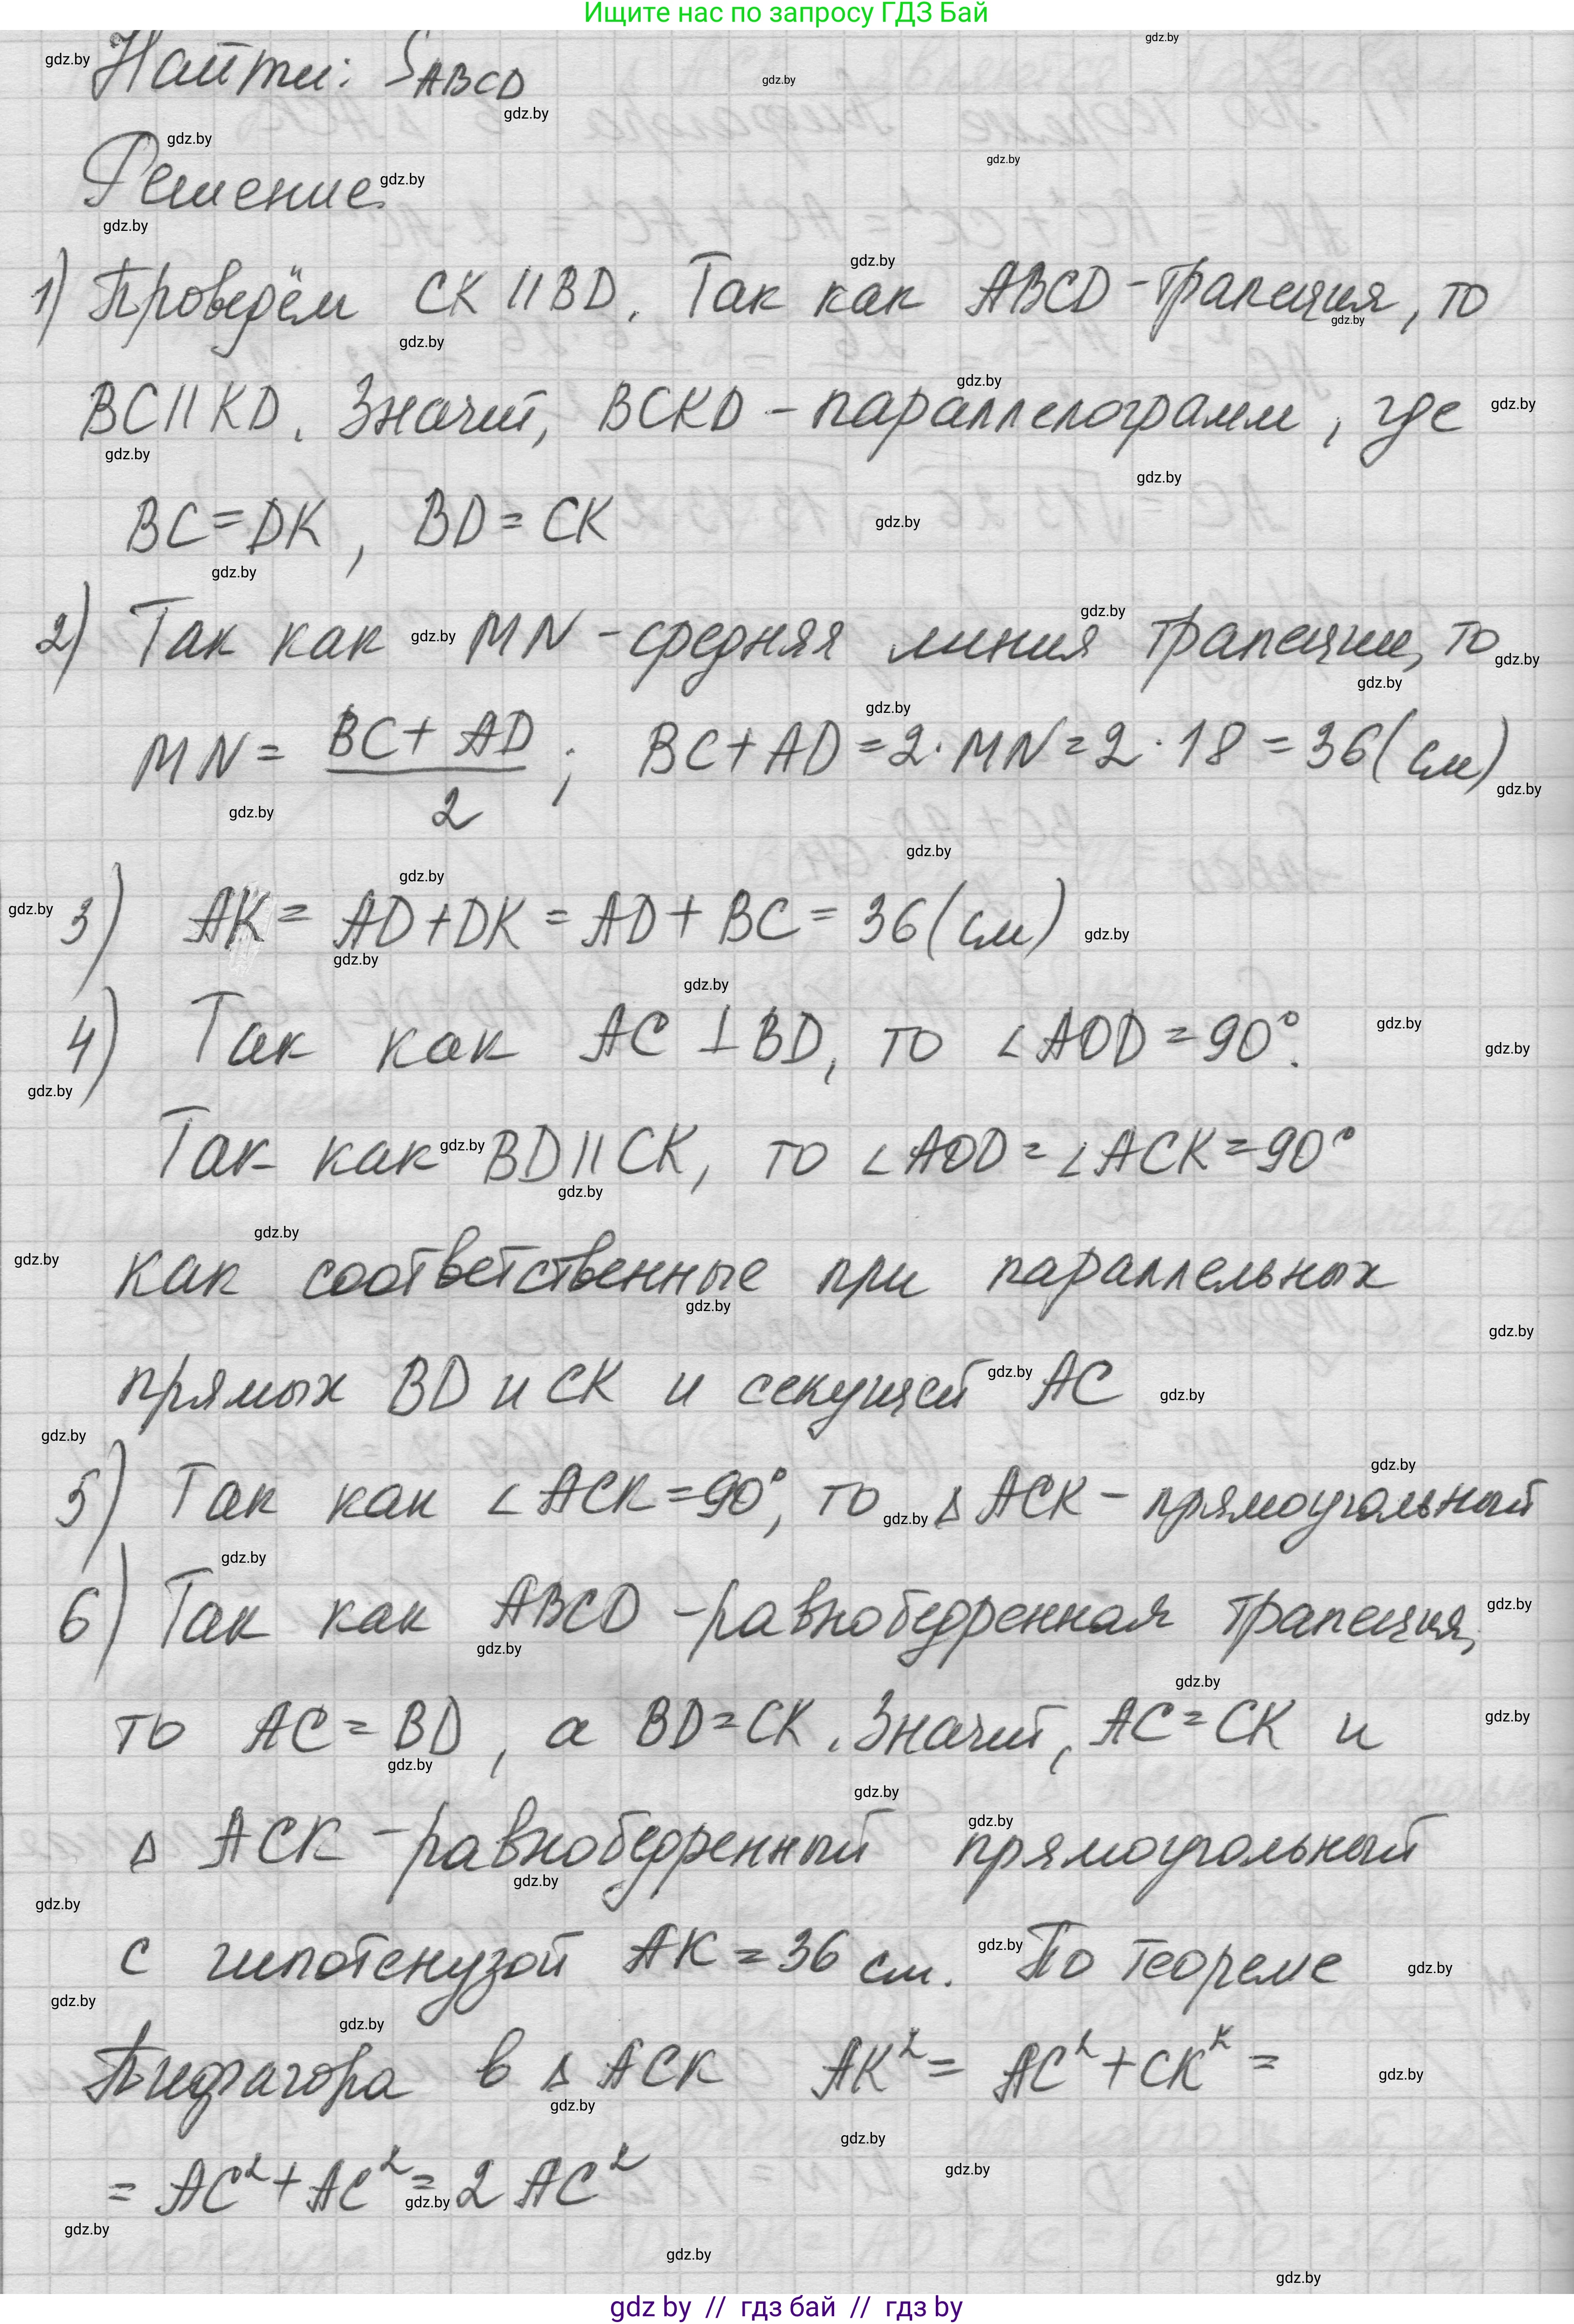 Ищите нас по запросу ГДЗ Бай
Найти: S_ABCD
Решение
1) Проведём CK || BD. Так как ABCD - трапеция, то
BC || KD. Значит, BCKD - параллелограмм, где
BC = DK, BD = CK
2) Так как MN - средняя линия трапеции, то
MN = (BC + AD)/2; BC + AD = 2 · MN = 2 · 18 = 36 (см)
3) AK = AD + DK = AD + BC = 36 (см)
4) Так как AC ⊥ BD, то ∠AOD = 90°.
Так как BD || CK, то ∠AOD = ∠ACK = 90°
как соответственные при параллельных
прямых BD и CK и секущей AC
5) Так как ∠ACK = 90°, то △ACK - прямоугольный
6) Так как ABCD - равнобедренная трапеция,
то AC = BD, а BD = CK. Значит, AC = CK и
△ ACK - равнобедренный прямоугольный
с гипотенузой AK = 36 см. По теореме
Пифагора в △ ACK AK² = AC² + CK² =
= AC² + AC² = 2 AC²
gdz by // гдз бай // гдз by